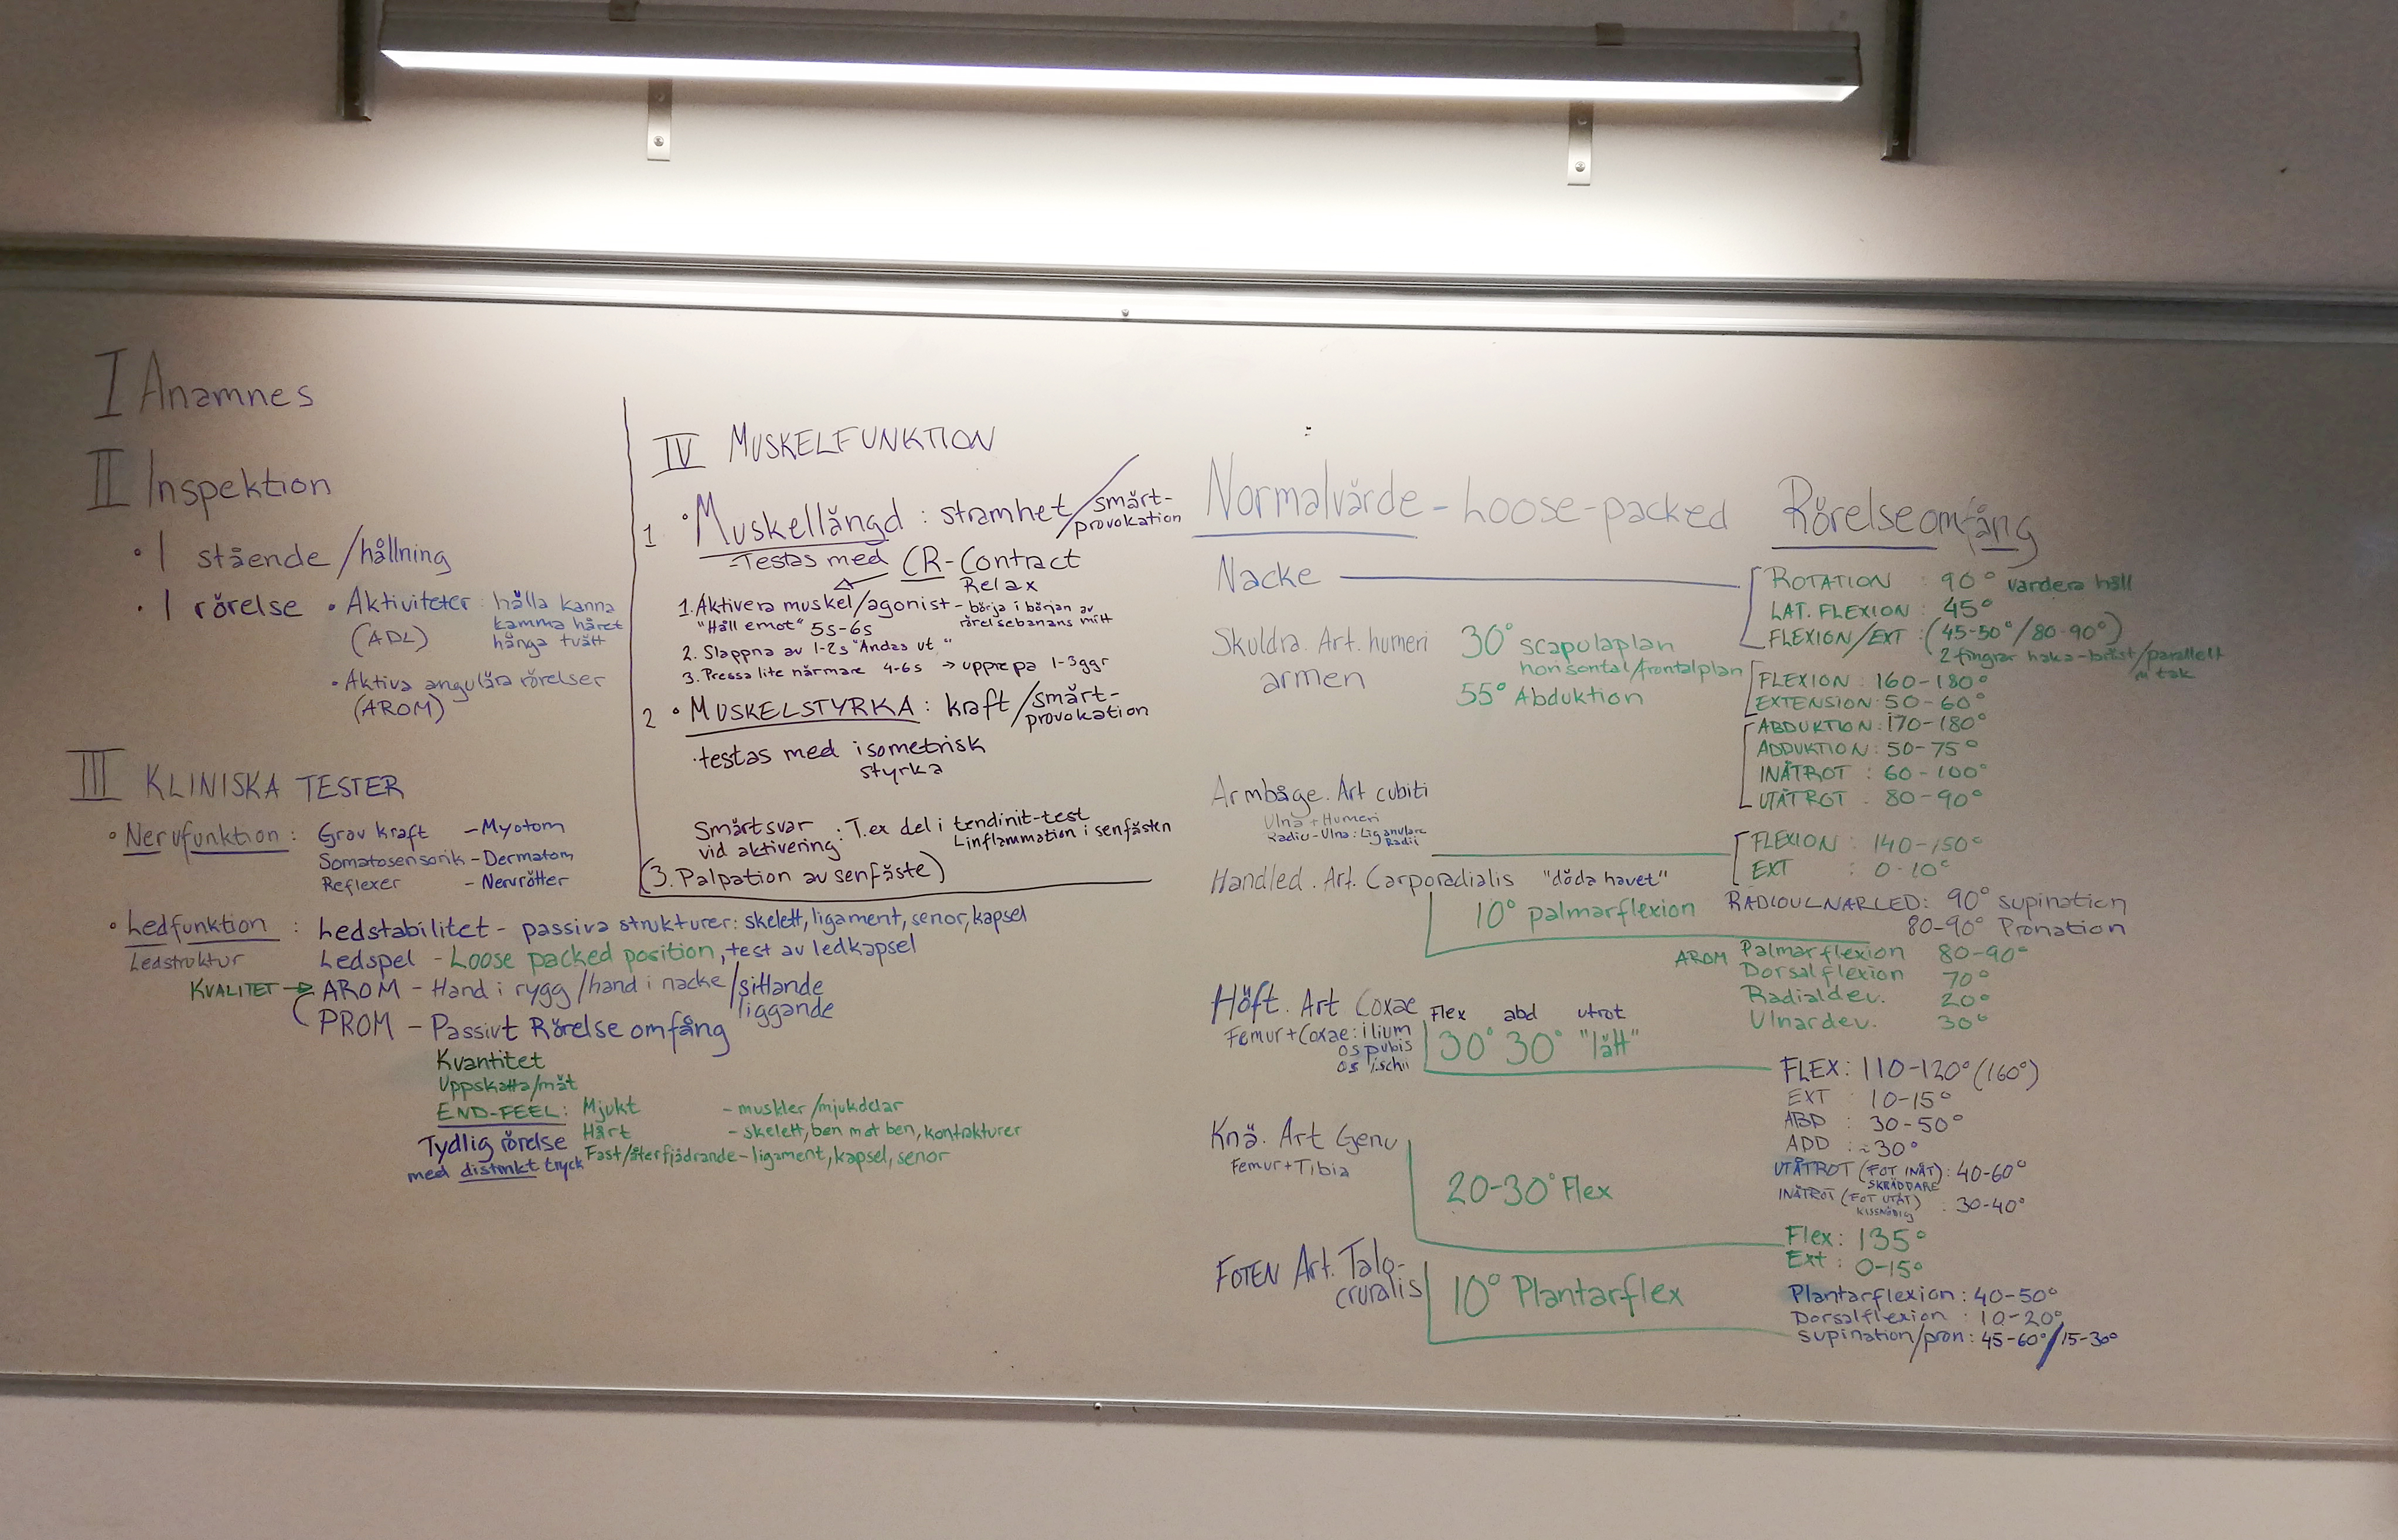 I Anamnes
II Inspektion
• I stående/hållning
• I rörelse • Aktiviteter: hålla kanna
(ADL) kamma håret
hänga tvätt
• Aktiva angulära rörelser
(AROM)
III KLINISKA TESTER
• Nervfunktion: Grov kraft - Myotom
Somatosensorik - Dermatom
Reflexer - Nervrötter
• Ledfunktion: Ledstabilitet - passiva strukturer: skelett, ligament, senor, kapsel
Ledstruktur Ledspel - Loose packed position, test av ledkapsel
KVALITET → AROM - Hand i rygg/hand i nacke/sittande
liggande
PROM - Passivt Rörelseomfång
Kvantitet
Uppskatta/mät
END-FEEL: Mjukt - muskler/mjukdelar
Hårt - skelett, ben mot ben, kontrakturer
Tydlig rörelse Fast/återfjädrande - ligament, kapsel, senor
med distinkt tryck
IV MUSKELFUNKTION
1 • Muskellängd: stramhet/smärt-
provokation
- Testas med CR - Contract
Relax
1. Aktivera muskel/agonist - börja i början av
"Håll emot" 5s-6s rörelsebanans mitt
2. Slappna av 1-2s "Andas ut"
3. Pressa lite närmare 4-6s → upprepa 1-3ggr
2 • MUSKELSTYRKA: kraft/smärt-
provokation
• testas med isometrisk
styrka
Smärtsvar
vid aktivering: T.ex del i tendinit-test
Linflammation i senfästen
(3. Palpation av senfäste)
Normalvärde - Loose-packed Rörelseomfång
Nacke
ROTATION : 90° vardera håll
LAT. FLEXION : 45°
FLEXION/EXT : (45-50°/80-90°)
2 fingrar haka-bröst/parallellt
m tak
Skuldra. Art. humeri 30° scapulaplan
horisontal/frontalplan
armen 55° Abduktion
FLEXION : 160-180°
EXTENSION: 50-60°
ABDUKTION: 170-180°
ADDUKTION: 50-75°
INÅTROT : 60-100°
UTÅTROT : 80-90°
Armbåge. Art cubiti
Ulna + Humeri
Radio-Ulna: Lig anulare
Radii
FLEXION : 140-150°
EXT : 0-10°
RADIOULNARLED: 90° supination
80-90° Pronation
Handled. Art. Carporadialis "döda havet"
10° palmarflexion
AROM Palmarflexion 80-90°
Dorsalflexion 70°
Radialdev. 20°
Ulnardev. 30°
Höft. Art Coxae Flex abd utrot
Femur+Coxae: ilium 30° 30° "lätt"
os pubis
os ischii
FLEX: 110-120° (160°)
EXT : 10-15°
ABD : 30-50°
ADD : ~30°
UTÅTROT (FOT INÅT): 40-60°
SKRÄDDARE
INÅTROT (FOT UTÅT) : 30-40°
KISSNÖDIG
Knä. Art Genu
Femur+Tibia
20-30° Flex
Flex: 135°
Ext: 0-15°
FOTEN Art. Talo-
cruralis
10° Plantarflex
Plantarflexion: 40-50°
Dorsalflexion : 10-20°
Supination/pron: 45-60°/15-30°